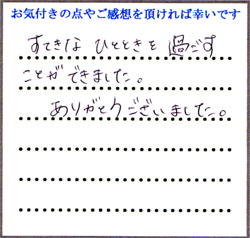 お気付きの点やご感想を頂ければ幸いです
すてきな ひとときを 過ごす
ことができました。
ありがとうございました。